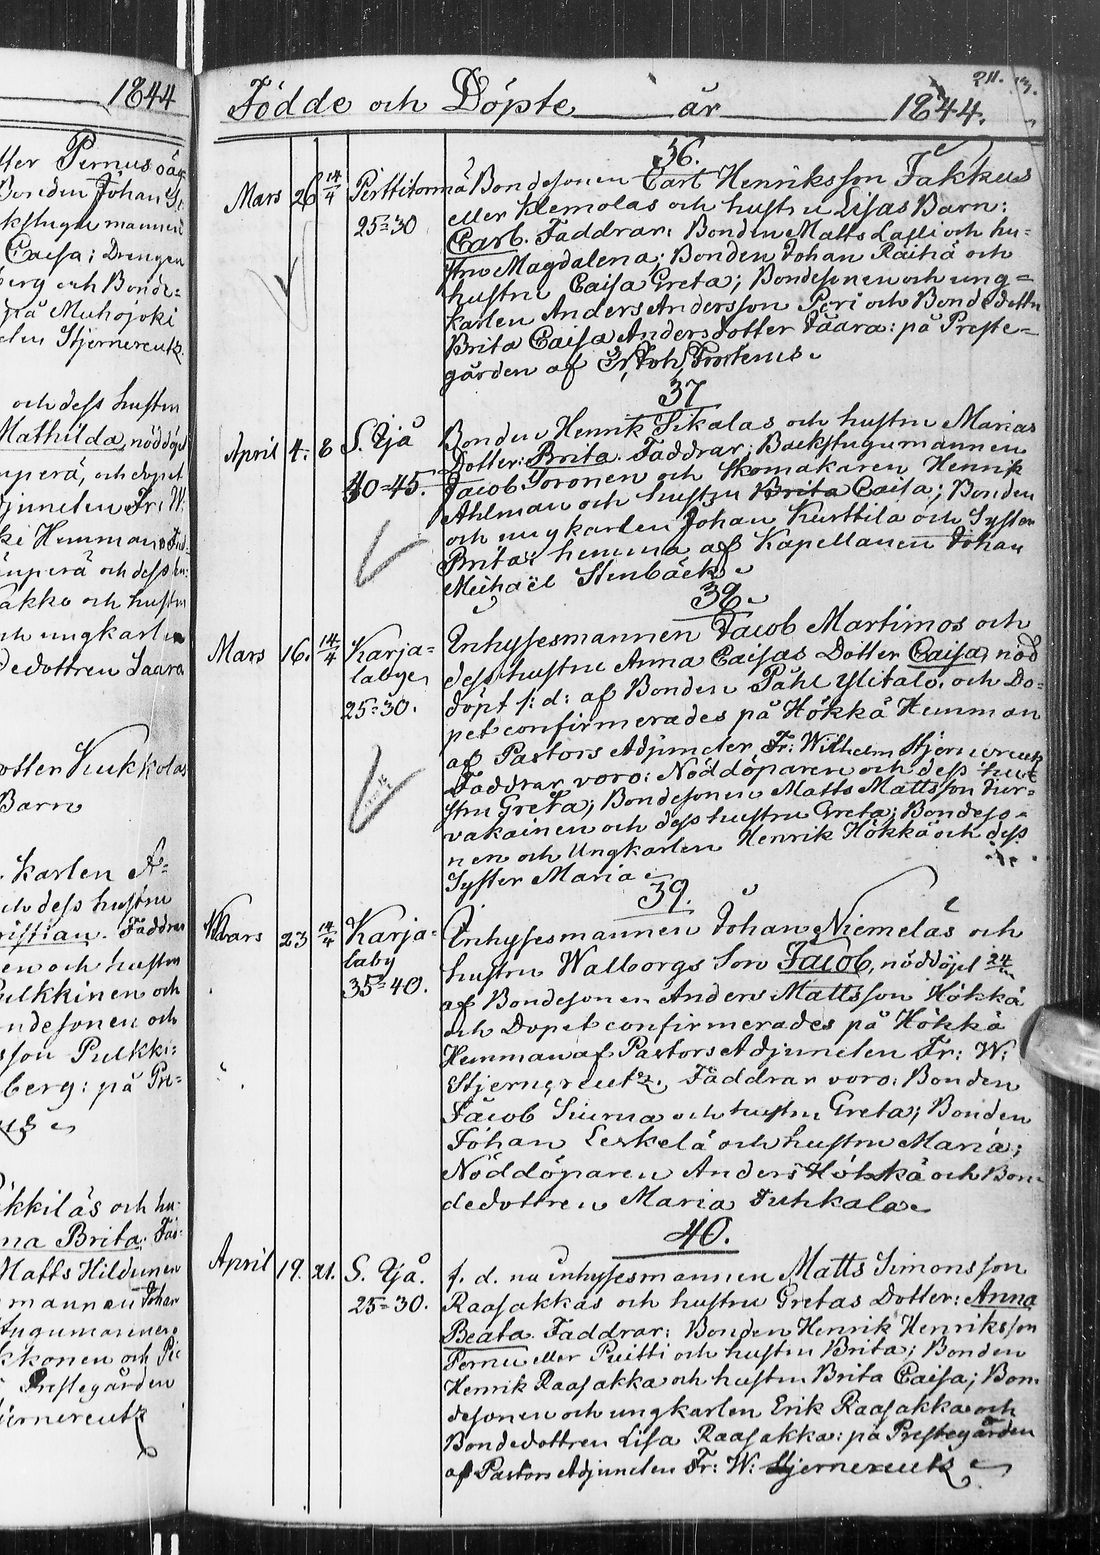 1844
tter Pernus
Bonden Johan
Caisa; Drengen
berg och Bonde-
på Muhojoki
Stjerncreutz.
och dess hustru
Mathilda, nöddöpt
nperä, och dopet
djuncten Fr: W:
nperä och dess
akko och hustru
och ungkarlen
dedottren Saara
otter Kukkolas
Barn
karlen A-
och dess hustru
ristian. Faddrar
en och hustru
Pulkkinen och
ndesonen och
sson Pulkki-
berg: på Pre-
kkiläs och hu-
na Brita; Fad-
Matts Hildunen
mannen Johan
kkonen och
Prestegården
jerncreutz
Födde och Döpte år 1844.
211.
36.
Mars 26 14/4 Perttitörmä Bondesonen Carl Henriksson Fakkus
25=30 eller Klemolas och hustru Lisas Barn:
Carl. Faddrar: Bonden Matts Lassi och hu-
stru Magdalena; Bonden Johan Raitia och
hustru Caisa Greta; Bondesonen och ung-
karlen Anders Andersson Peri och Bondedottren
Brita Caisa Andersdotter Vaara: på Preste-
gården af
37
April 4. 8 S. Tjå Bonden Henrik Sikalas och hustru Marias
Dotter: Brita. Faddrar; Backstugumannen
40=45. Jacob Soronen och Skomakaren Henrik
Ahlman och hustru Brita Caisa; Bonden
och ungkarlen Johan Kurttila och Syster
Brita: hemma af Kapellanen Johan
Michaël Stenbäck
38.
Mars 16. 14/4 Karja- Inhysesmannen Jacob Martimos och
labye, dess hustru Anna Caisas Dotter Caisa, nöd
25=30. döpt s: d: af Bonden Påhl Ylitalo, och Do-
pet confirmerades på Hökkä Hemman
af Pastors Adjuncten Fr: Wilhelm Stjerncreutz
Faddrar voro: Nöddöparen och dess hu-
stru Greta; Bondesonen Matts Mattsson Tur-
vakainen och dess hustru Greta; Bondeso-
nen och Ungkarlen Henrik Hökkä och dess
Syster Maria
39.
Mars 23 14/4 Karja- Inhysesmannen Johan Niemeläs och
laby hustru Walborgs Son Jacob, nöddöpt 24
35=40. af Bondesonen Anders Mattsson Hökkä
och Dopet confirmerades på Hökkä
Hemman af Pastors Adjuncten Fr: W:
Stjerncreutz. Faddrar voro: Bonden
Jacob Siurua och hustru Greta; Bonden
Johan Leskelä och hustru Maria;
Nöddöparen Anders Hökkä och Bon-
dedottren Maria Juhkala
40.
April 19. 21. S. Tjå. f. d. nu inhysesmannen Matts Simonsson
25=30. Raasakkas och hustru Gretas Dotter: Anna
Beata. Faddrar: Bonden Henrik Henriksson
Pernu eller Puitti och hustru Brita; Bonden
Henrik Raasakka och hustru Brita Caisa; Bon
desonen och ungkarlen Erik Raasakka och
Bondedottren Lisa Raasakka: på Prestegården
af Pastors Adjuncten Fr: W: Stjerncreutz